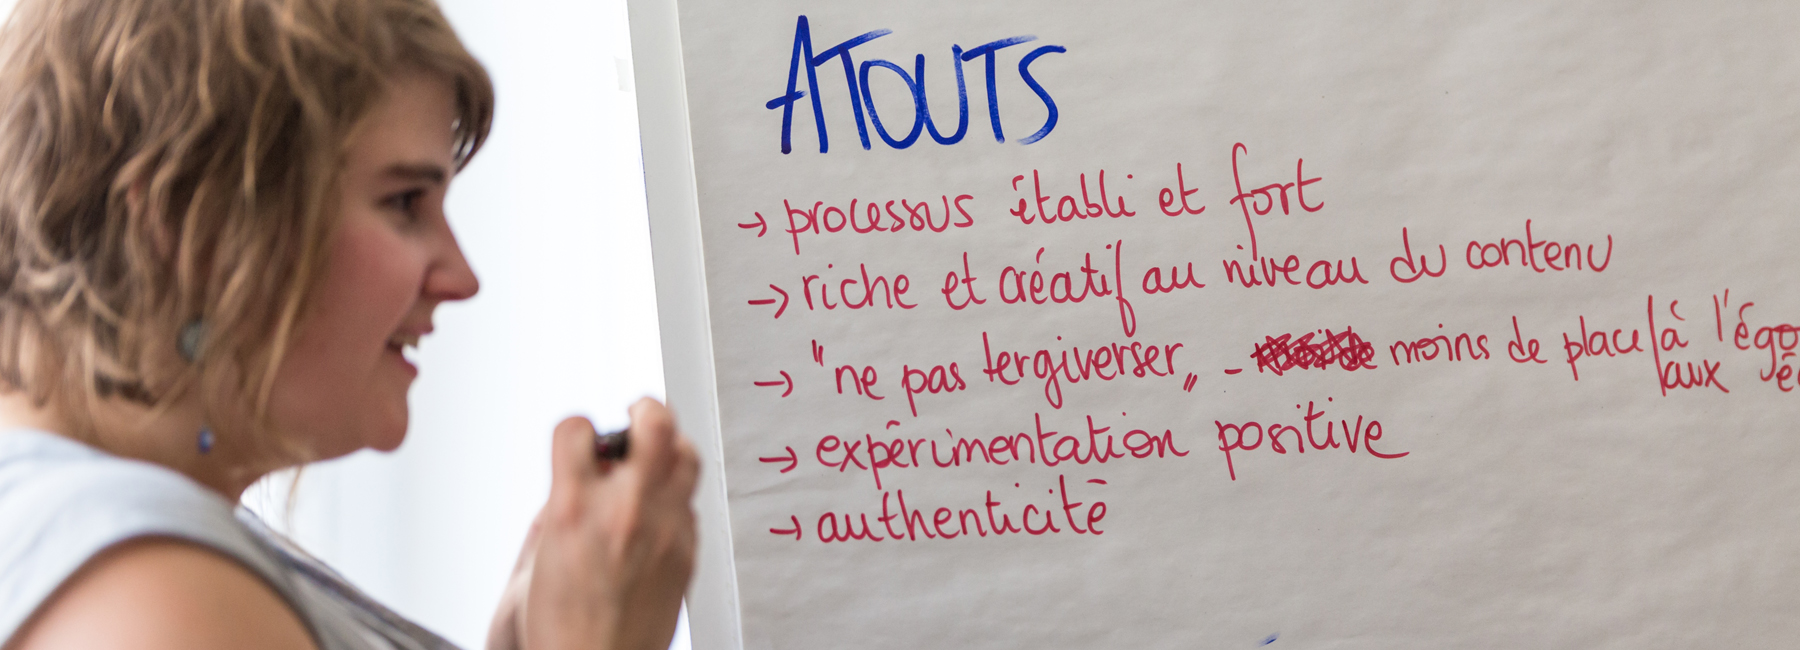 ATOUTS
→ processus établi et fort
→ riche et créatif au niveau du contenu
→ "ne pas tergiverser" - moins de place à l'égo
aux
→ expérimentation positive
→ authenticité